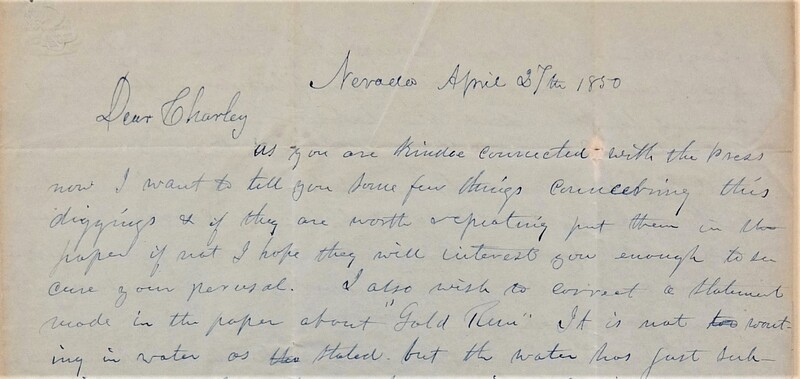 Nevada April 27th 1850
Dear Charley
as you are kindoe connected with the press
now I want to tell you some few things concerning this
diggings & if they are worth repeating put them in the
paper if not I hope they will interest you enough to se
cure your perusal. I also wish to correct a statement
made in the paper about "Gold Run" It is not want-
ing in water as stated but the water has just sub-